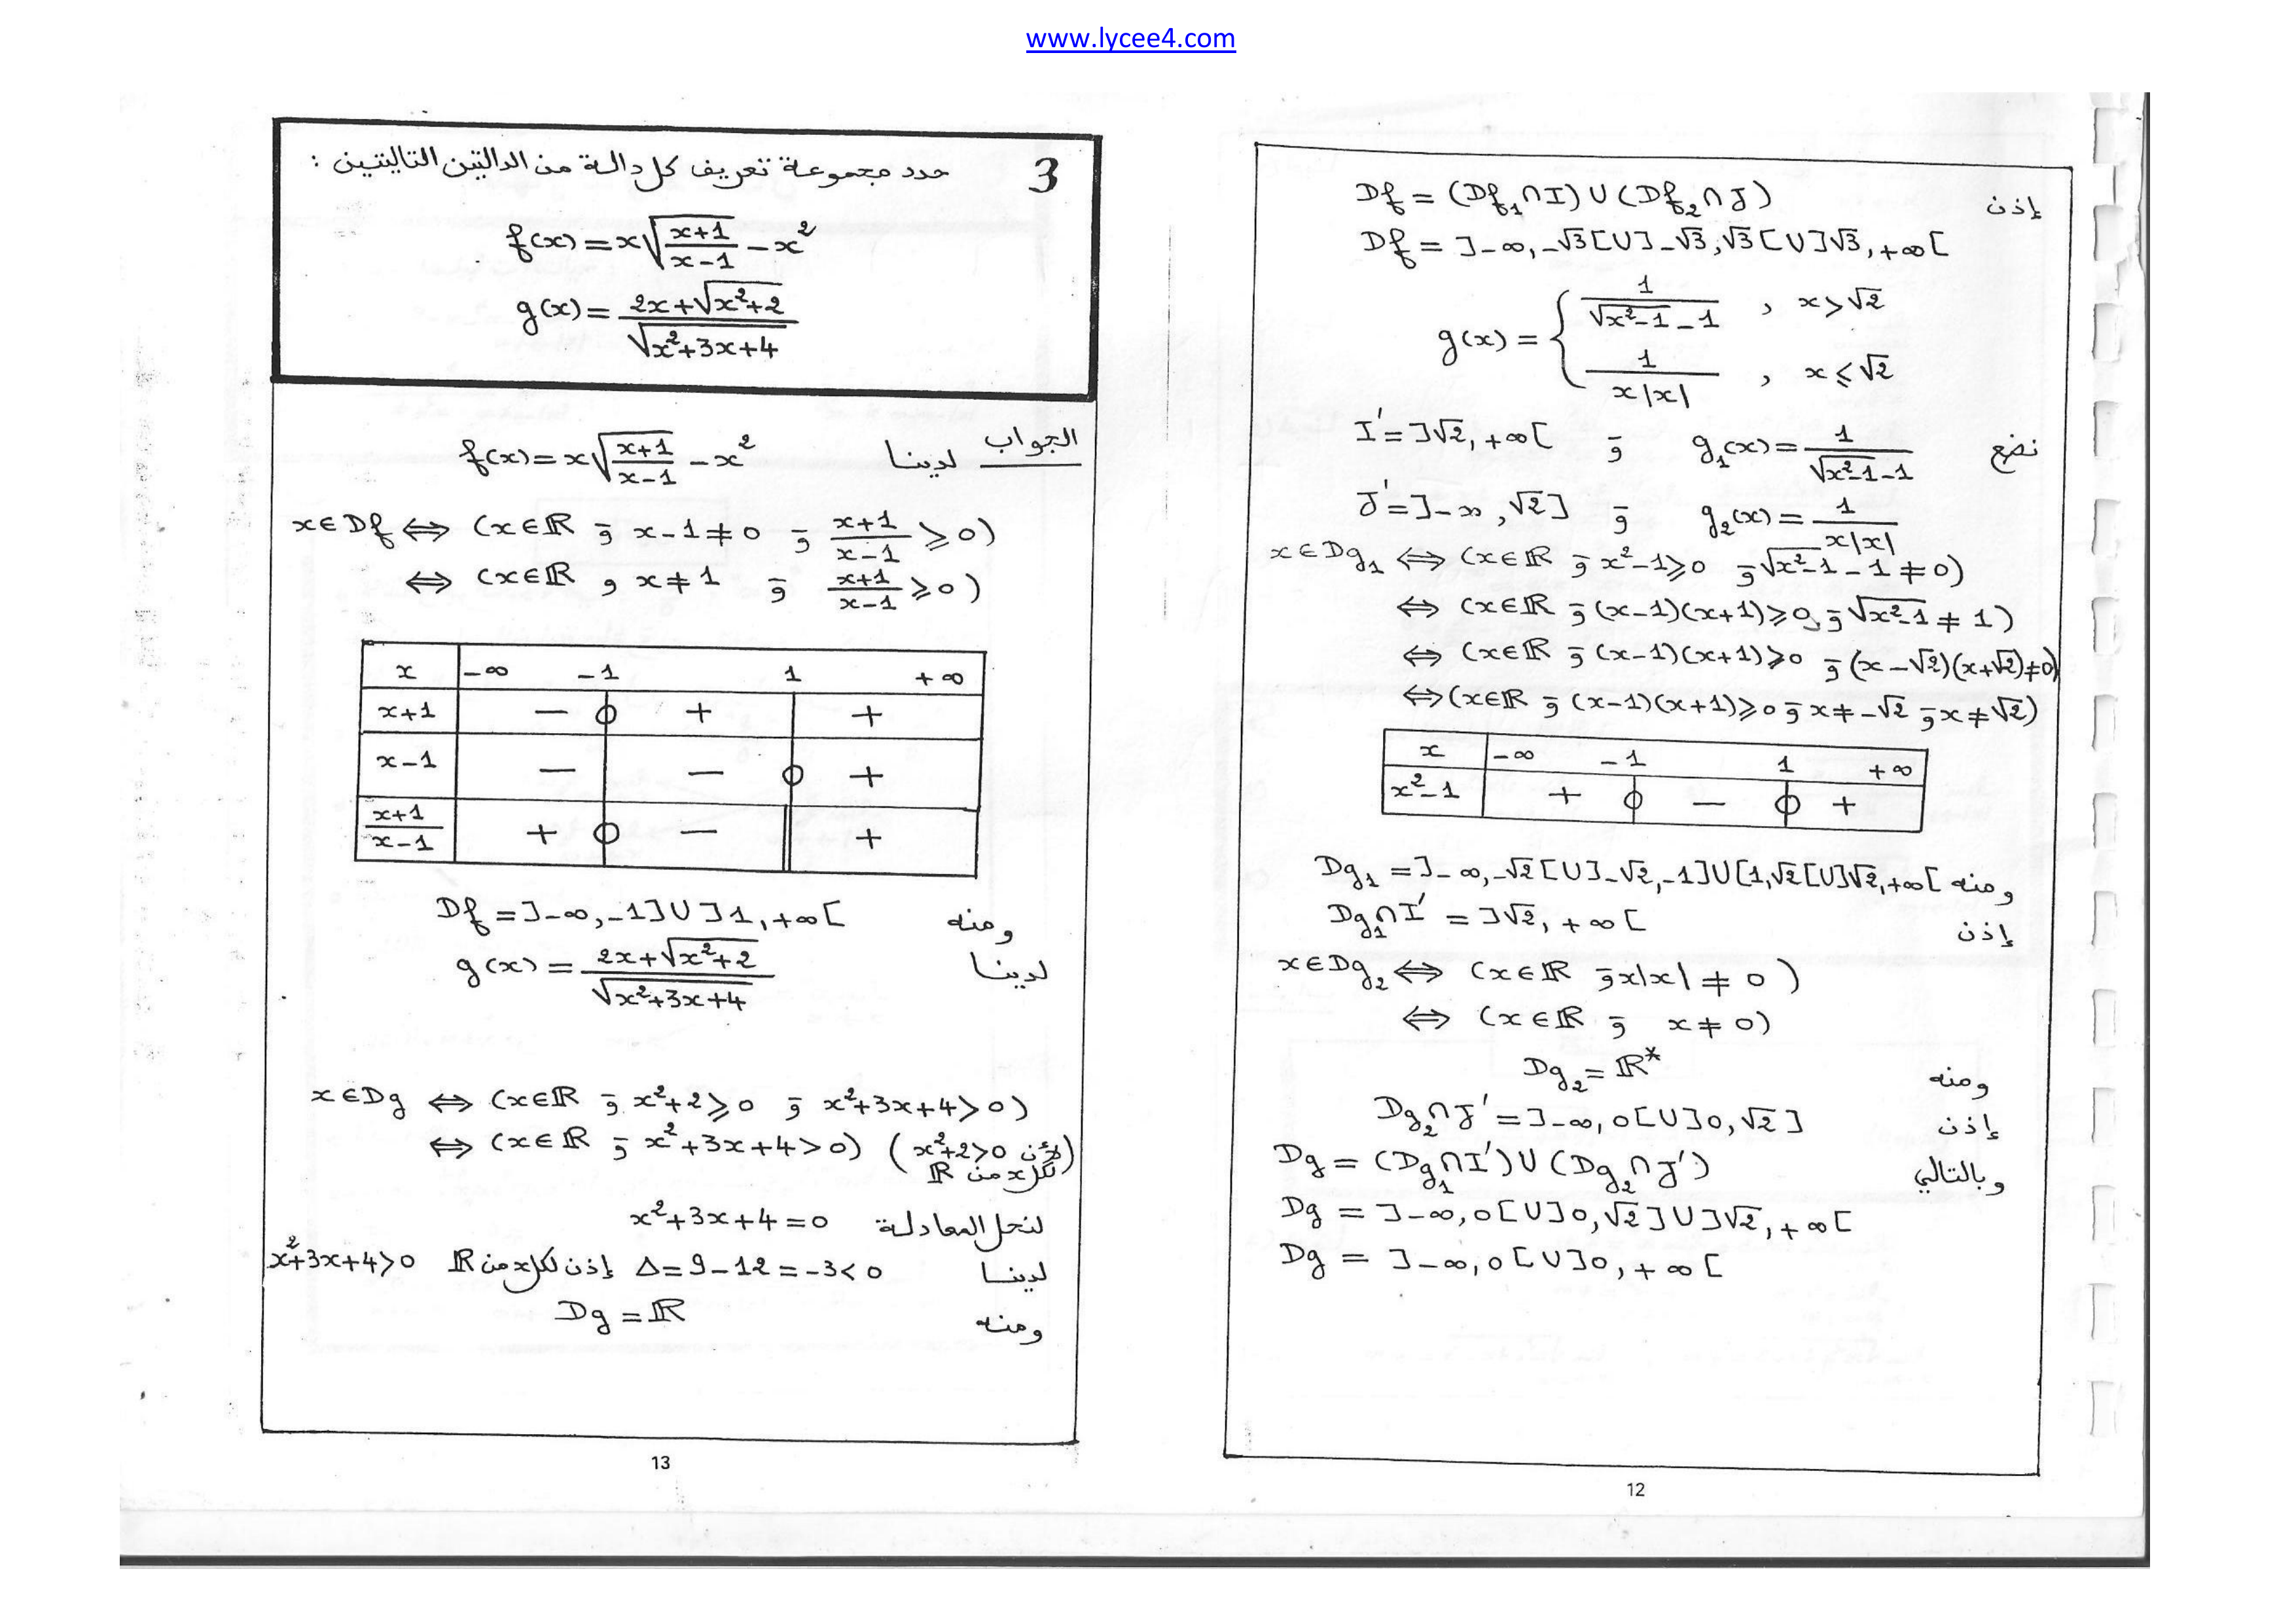 www.lycee4.com
إذن Df = (Df₁∩I)∪(Df₂∩J)
Df = ]-∞,-√3[∪]-√3,√3[∪]√3,+∞[
g(x) = { 1/(√(x²-1) - 1) , x>√2
1/(x|x|) , x⩽√2
نضع g₁(x) = 1/(√(x²-1) - 1) و I' = ]√2,+∞[
g₂(x) = 1/(x|x|) و J' = ]-∞,√2]
x∈Dg₁ ⇔ (x∈ℝ و x²-1⩾0 و √(x²-1) - 1 ≠ 0)
⇔ (x∈ℝ و (x-1)(x+1)⩾0 و √(x²-1) ≠ 1)
⇔ (x∈ℝ و (x-1)(x+1)⩾0 و (x-√2)(x+√2)≠0)
⇔ (x∈ℝ و (x-1)(x+1)⩾0 و x≠-√2 و x≠√2)
x -∞ -1 1 +∞
x²-1 + 0 - 0 +
ومنه Dg₁ = ]-∞,-√2[∪]-√2,-1]∪[1,√2[∪]√2,+∞[
إذن Dg₁∩I' = ]√2,+∞[
x∈Dg₂ ⇔ (x∈ℝ و x|x| ≠ 0)
⇔ (x∈ℝ و x≠0)
ومنه Dg₂ = ℝ*
إذن Dg₂∩J' = ]-∞,0[∪]0,√2]
وبالتالي Dg = (Dg₁∩I')∪(Dg₂∩J')
Dg = ]-∞,0[∪]0,√2]∪]√2,+∞[
Dg = ]-∞,0[∪]0,+∞[
12
3 حدد مجموعة تعريف كل دالة من الدالتين التاليتين :
f(x) = x√((x+1)/(x-1)) - x²
g(x) = (2x+√(x²+2))/√(x²+3x+4)
الجواب لدينا f(x) = x√((x+1)/(x-1)) - x²
x∈Df ⇔ (x∈ℝ و x-1≠0 و (x+1)/(x-1) ⩾ 0)
⇔ (x∈ℝ , x≠1 و (x+1)/(x-1) ⩾ 0)
x -∞ -1 1 +∞
x+1 - 0 + +
x-1 - - 0 +
(x+1)/(x-1) + 0 - || +
ومنه Df = ]-∞,-1]∪]1,+∞[
لدينا g(x) = (2x+√(x²+2))/√(x²+3x+4)
x∈Dg ⇔ (x∈ℝ و x²+2⩾0 و x²+3x+4>0)
⇔ (x∈ℝ و x²+3x+4>0) (لأن x²+2>0
لكل x من ℝ)
لنحل المعادلة x²+3x+4=0
لدينا Δ=9-12=-3<0 إذن لكل x من ℝ x²+3x+4>0
ومنه Dg = ℝ
13